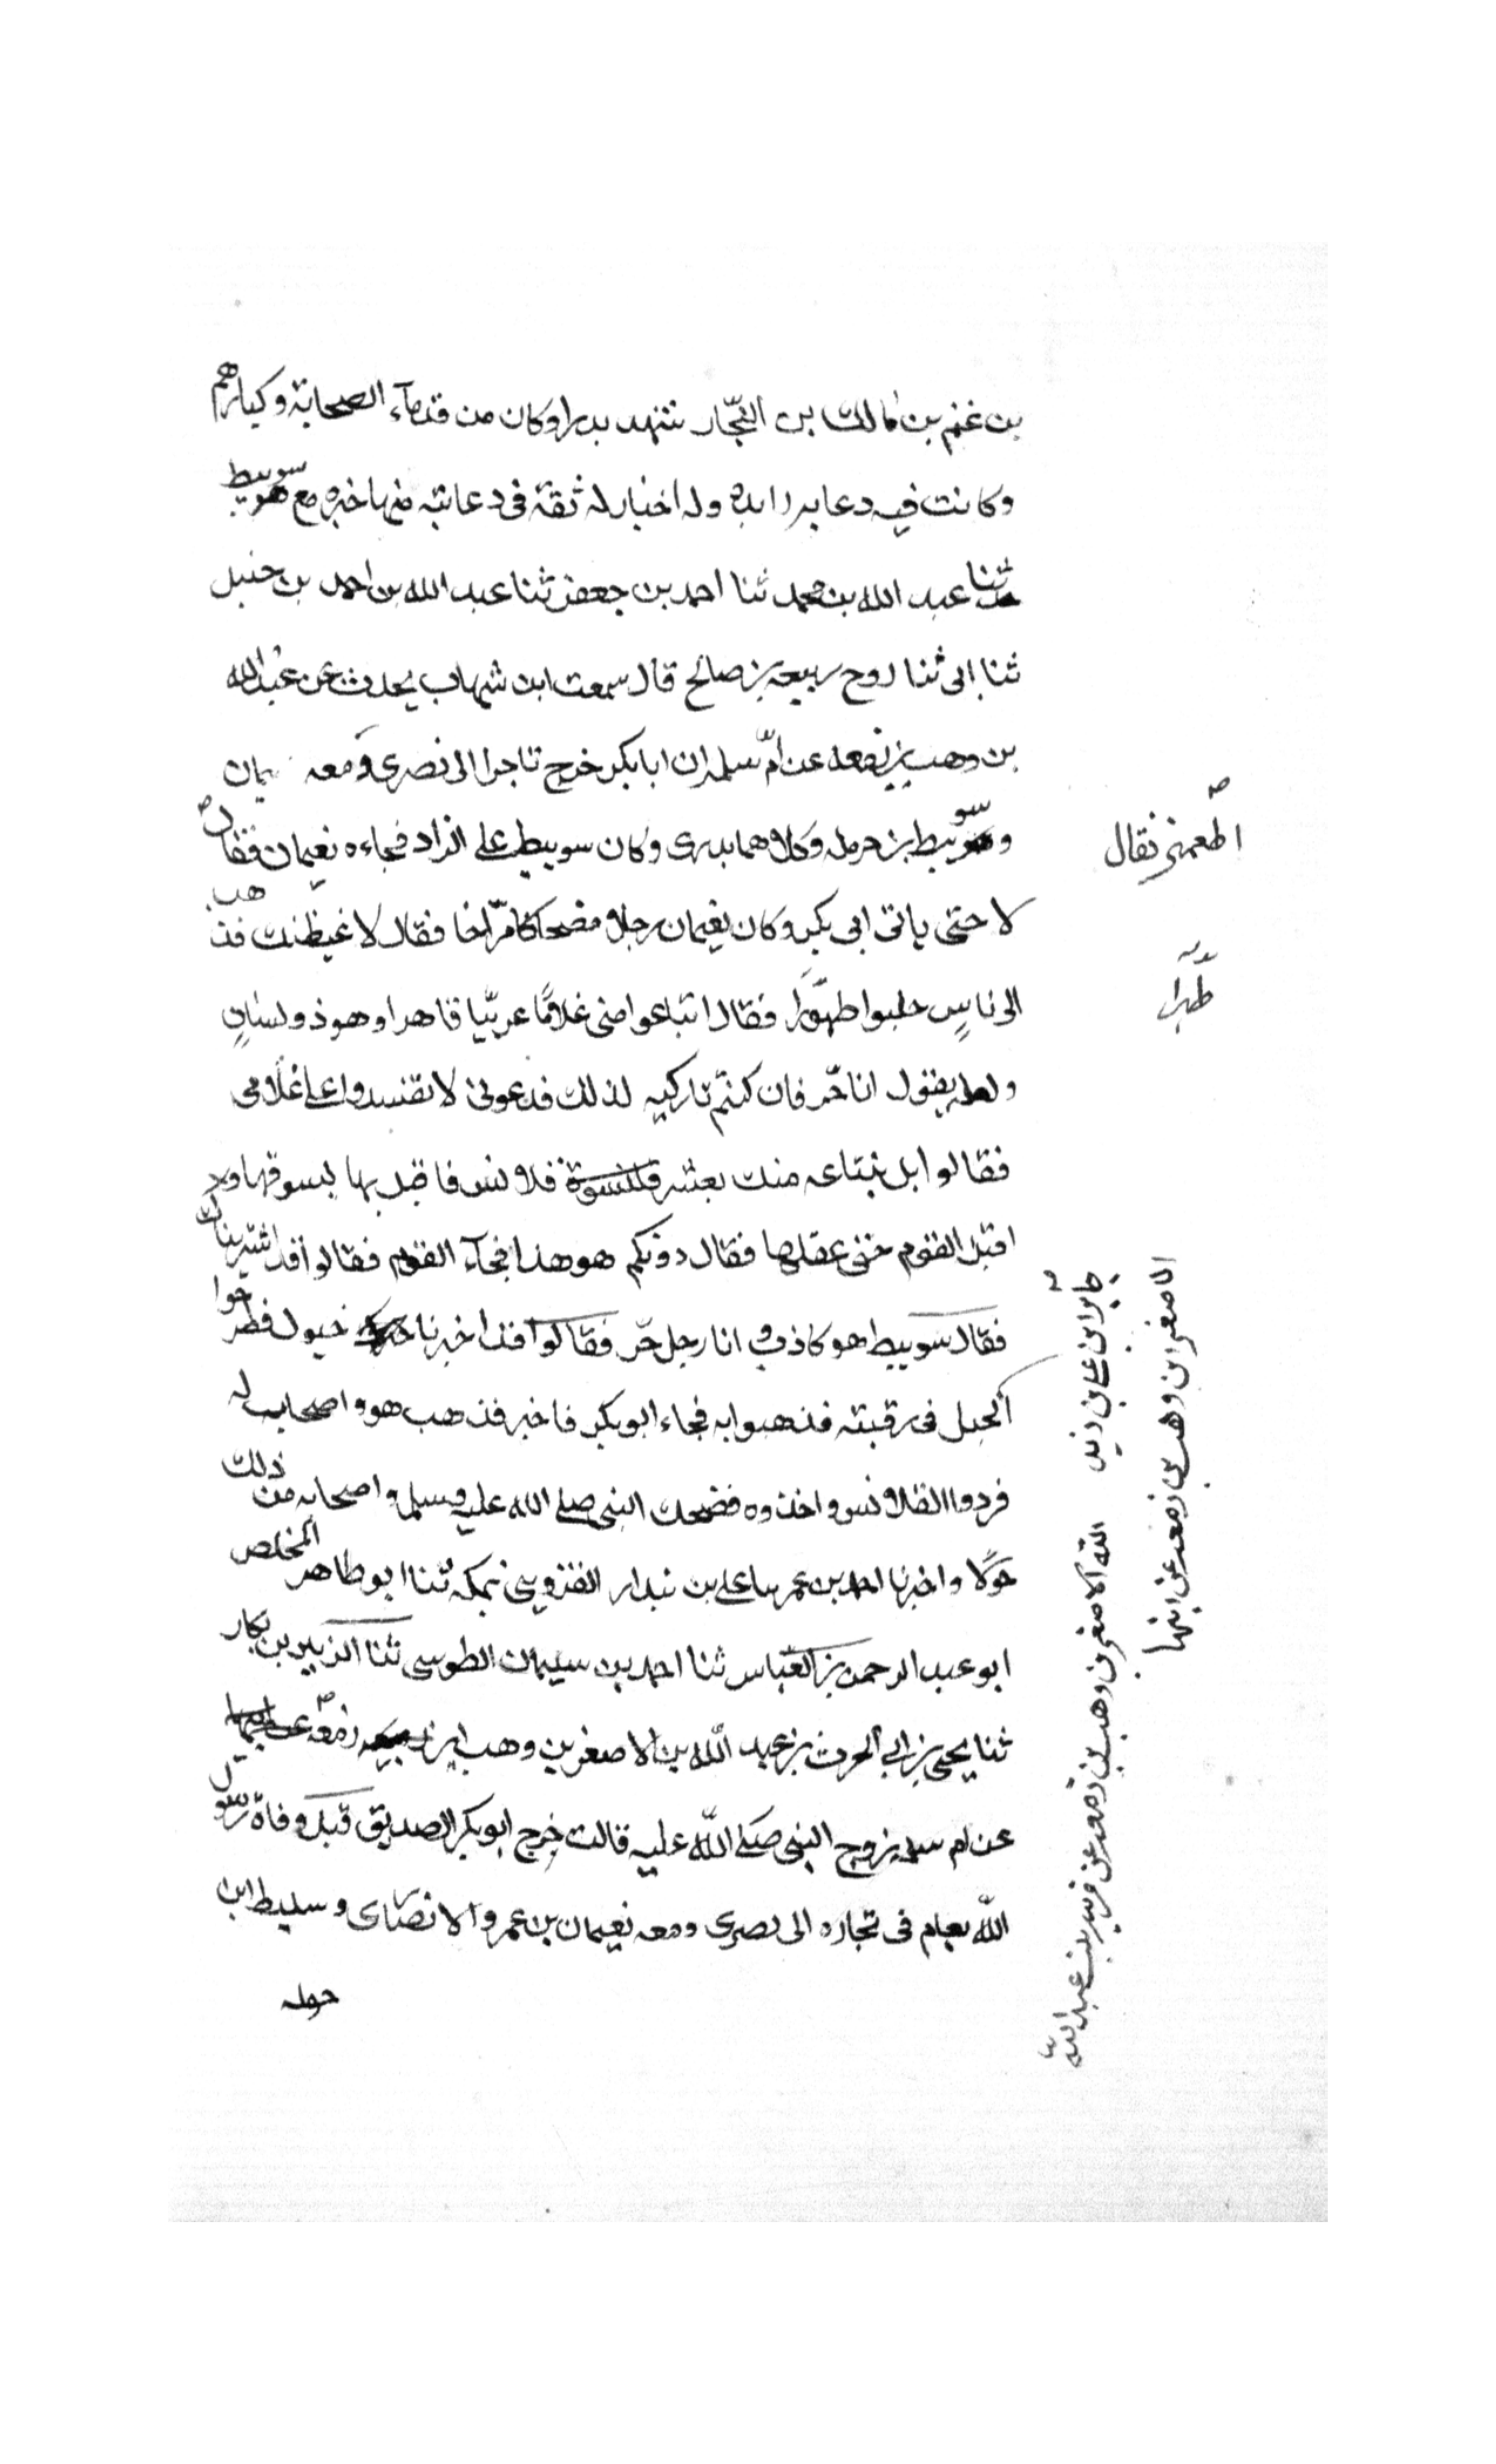 بن غنم بن مالك بن النجّار شهد بدرا وكان من قدمآء الصحابة وكبارهم
وكانت فيه دعابه زايده وله اخبار له ثقة فى دعابته منها خبره مع سويبط
ثنا عبد الله بن محمد ثنا احمد بن جعفر ثنا عبد الله بن احمد بن حنبل
ثنا ابى ثنا روح ربيعه بن صالح قال سمعت ابن شهاب يحدث عن عبد الله
بن وهب بن زمعه عن امّ سلمه ان ابا بكر خرج تاجرا الى بصرى ومعه يمان
وسويبط بن حرمله وكلاهما بدرى وكان سويبط على الزاد فجاءه نعيمان فقال
لا حتى ياتى ابى بكر وكان نعيمان رجلا مضحاكا مزّاحا فقال لاغيظنك فذهب
الى ناسٍ جلبوا ظهرا فقال ابتاعوا منى غلامًا عربيّا فاهرا وهو ذو لسانٍ
ولعله يقول انا حّر فان كنتم تاركيه لذلك فدعونى لا تفسدوا على غلامى
فقالوا بل نبتاعه منك بعشر قلانس فاقبل بها يسوقها و
اقبل القوم حتى عقلها فقال دونكم هو هذا فجآء القوم فقالوا قد اشتريناك
فقال سويبط هو كاذب انا رجل حّر فقالوا قد اخبرنا خبرك فطرحوا
الحبل فى رقبته فذهبوا به فجاء ابو بكر فاخبر فذهب هو واصحاب له
فردوا القلانس واخذوه فضحك النبى صلى الله عليه وسلم واصحابه من ذلك
حولًا واخبرنا احمد بن عمر بنا على بن بندار القزوينى بمكه ثنا ابو طاهر المخلص
ابو عبد الرحمن بن العبّاس ثنا احمد بن سليمان الطوسى ثنا الزبير بن بكار
ثنا يحيى بن ابى الحرث بن عبد اللّه بن الاصغر بن وهب ابن زمعه
عن ام سلمه زوج النبى صلى اللّه عليه قالت خرج ابو بكر الصديق قبل وفاة رسول
اللّه بعام فى تجاره الى بصرى ومعه نعيمان بن عمرو الانصارى وسليط ابن
حرمله
اطعمنى فقال
ظهرا
جابر ابن على بن
اللّه الاصغر بن وهب بن زمعه عن قريبه بنت عبد اللّه
الاصغر ابن وهب بن زمعه عن ابيها